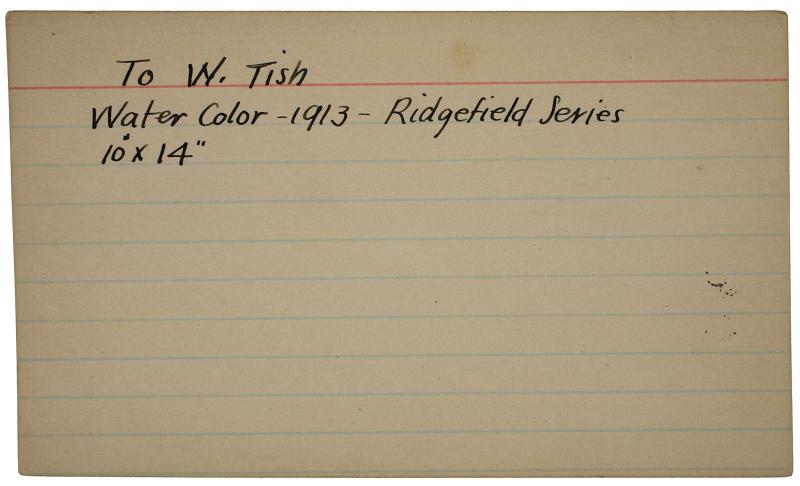 To W. Tish
Water Color - 1913 - Ridgefield Series
10" x 14"